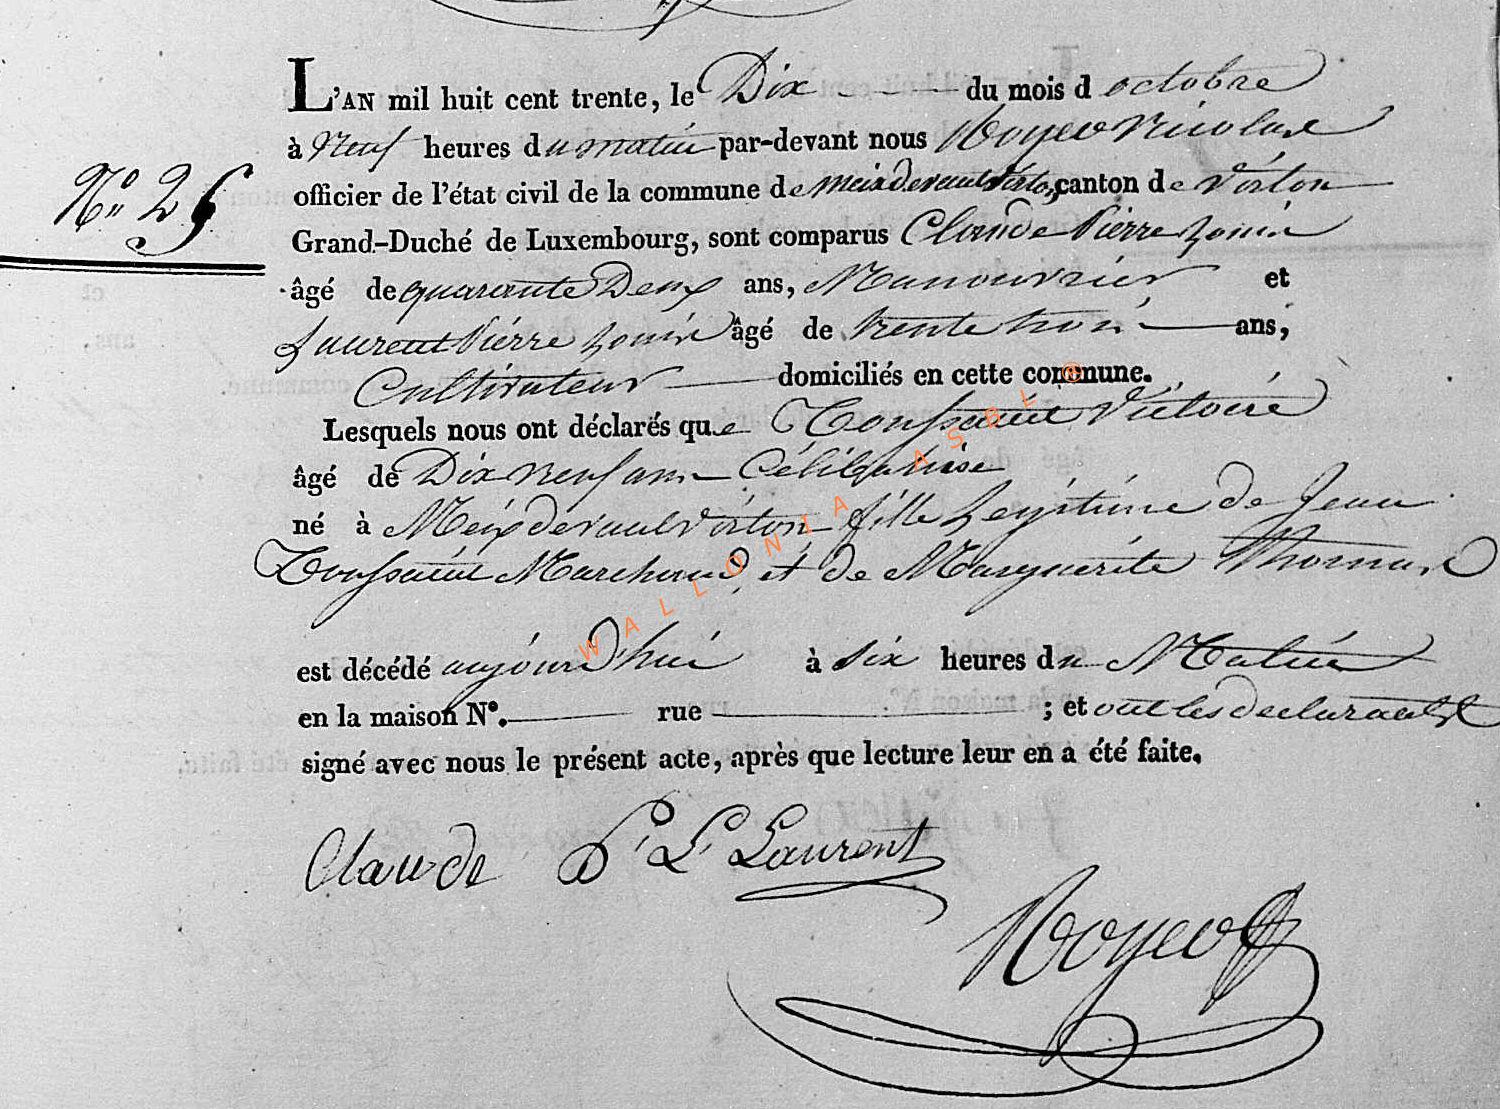 L'AN mil huit cent trente, le Dix du mois d octobre
à Neuf heures du matin par-devant nous Noyer Nicolas
N° 25
officier de l'état civil de la commune de meix devant Virton, canton de Virton
Grand-Duché de Luxembourg, sont comparus Claude Pierre Louis
âgé de quarante Deux ans, Manouvrier et
Laurent Pierre Louis âgé de trente trois ans,
Cultivateur domiciliés en cette commune.
Lesquels nous ont déclarés que Toussaint Victoire
âgé de Dix neuf ans Célibataire
né à Meix devant Virton fille Legitime de Jean
Toussaint Marchand et de Marguerite Thomas
est décédé aujourd'hui à six heures du Matin
en la maison N°. rue ; et ont les declarants
signé avec nous le présent acte, après que lecture leur en a été faite.
Claude P. L. Laurent
WALLONIA ASBL ®